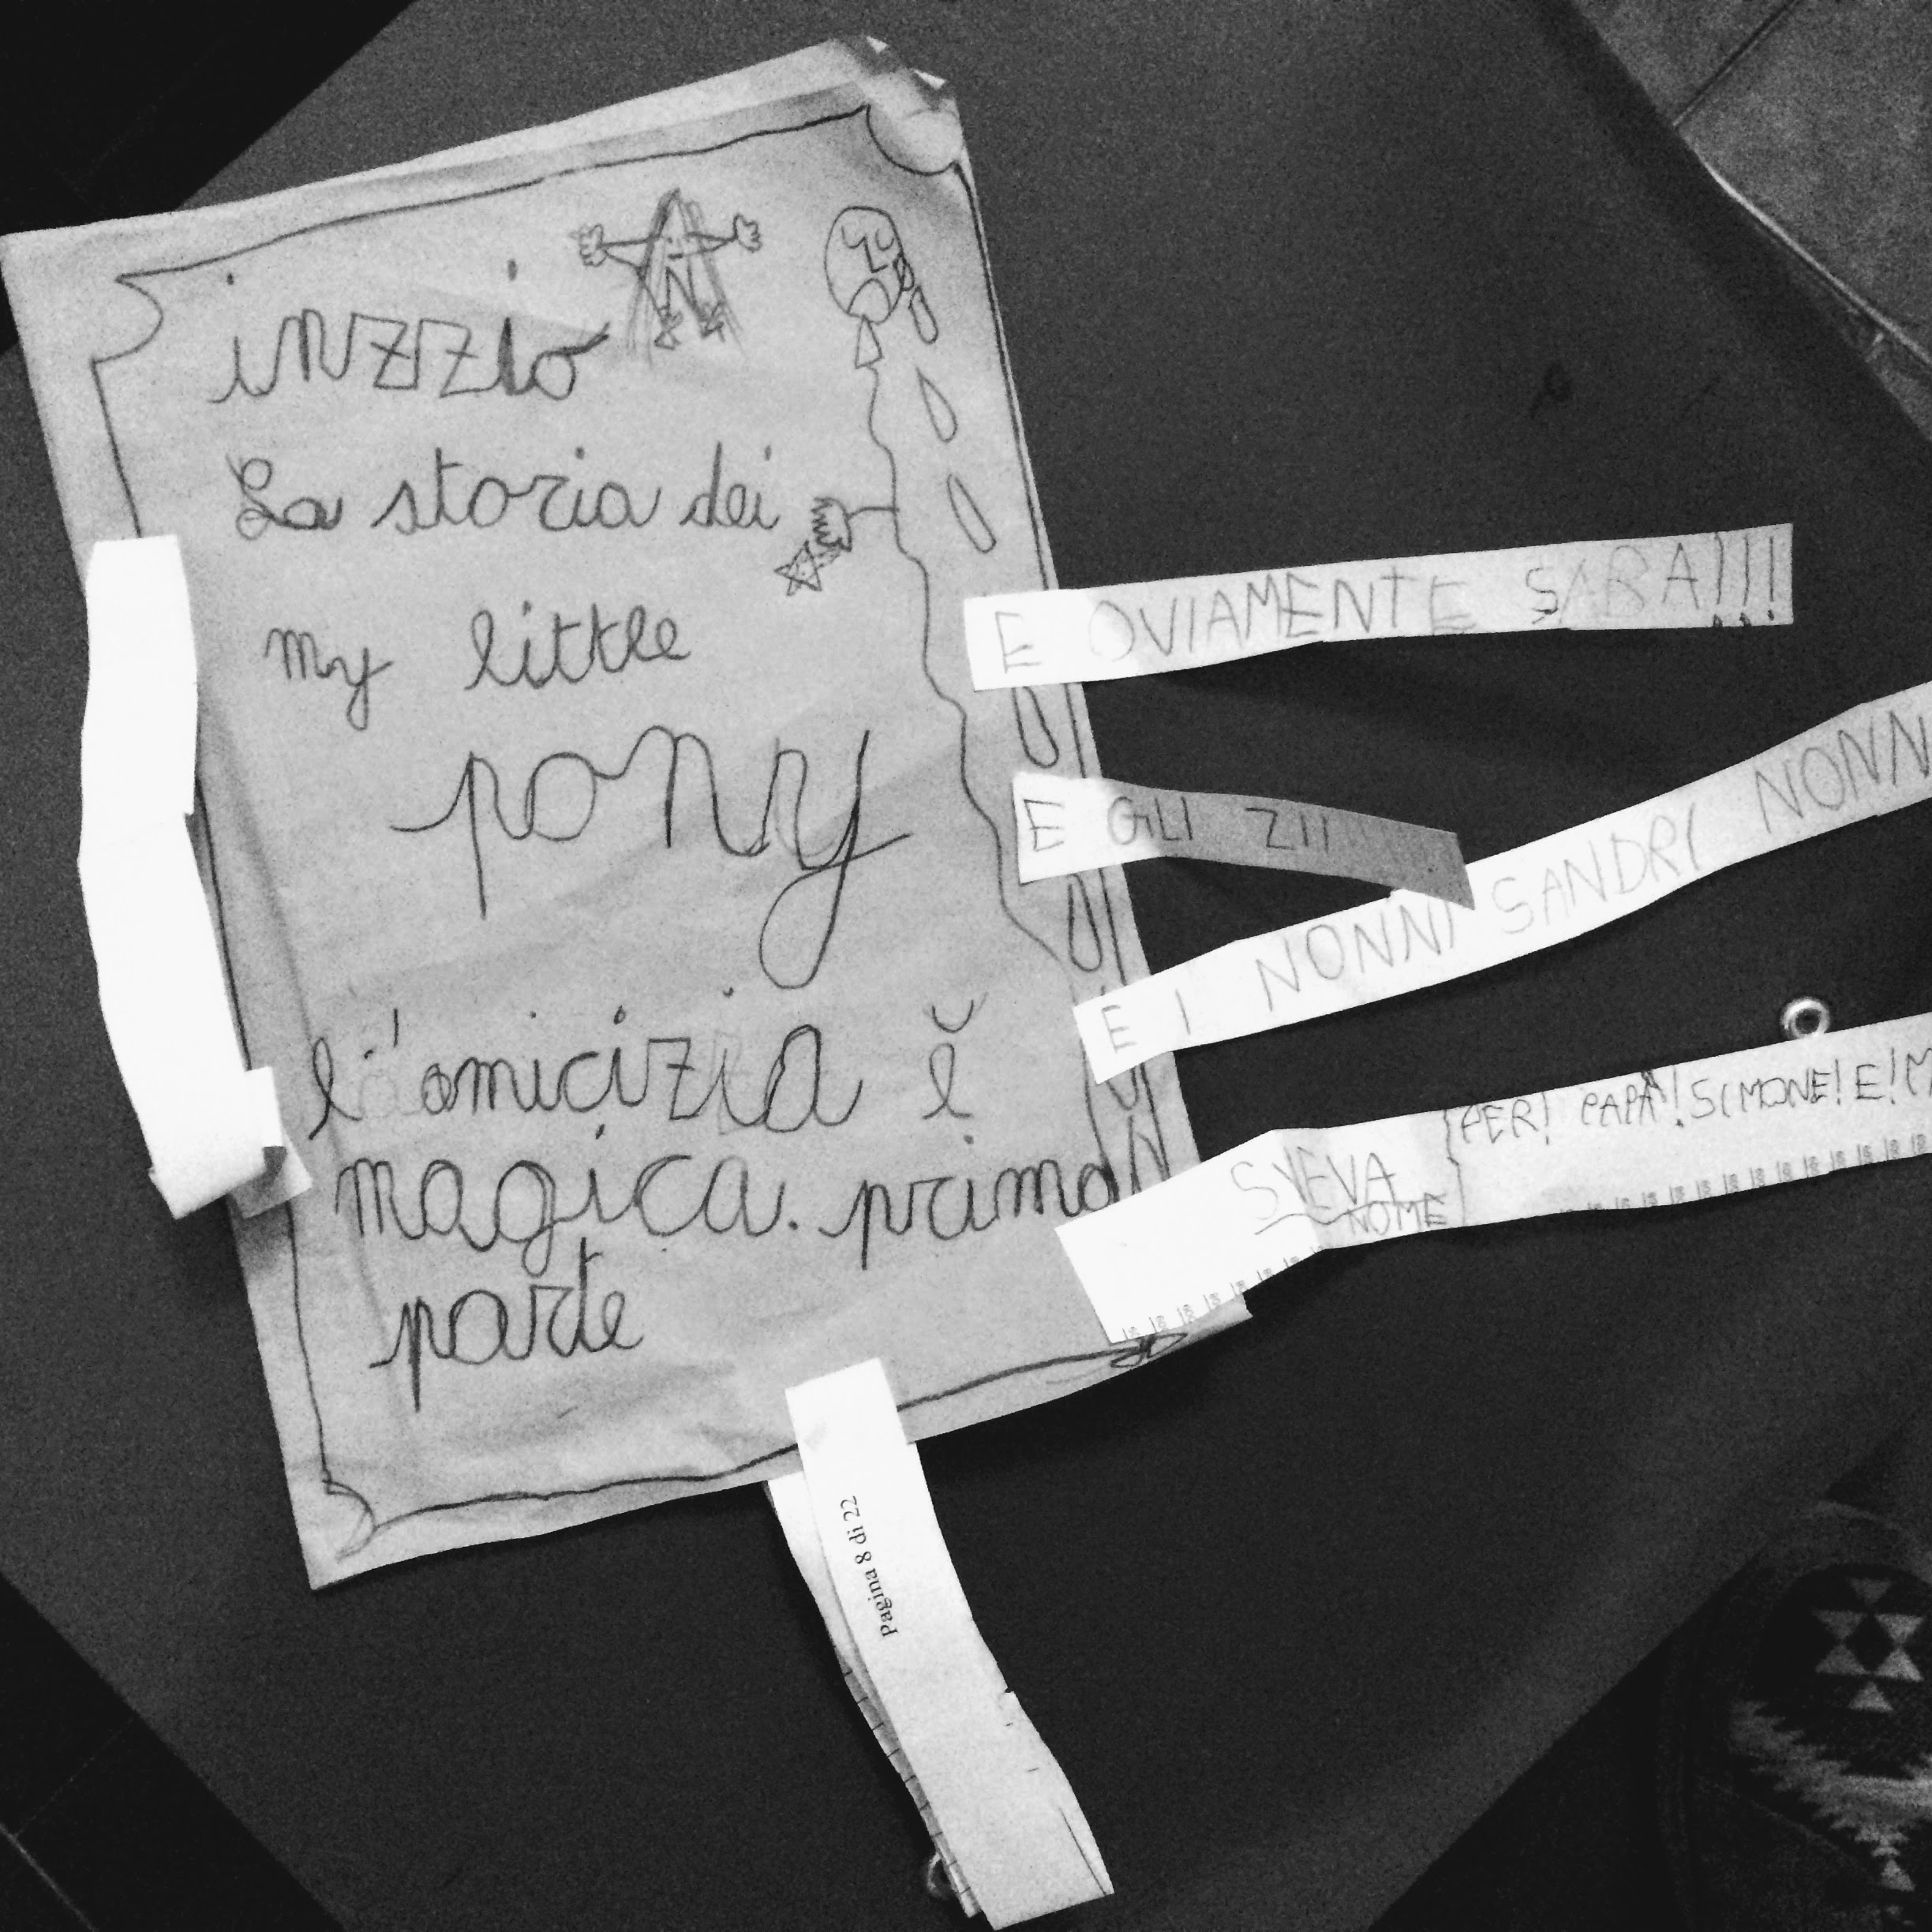 inzzio
La storia dei
my little
pony
l'amicizia è
magica. prima
parte
E OVIAMENTE SARA!!!
E GLI ZII
E I NONNI SANDRI NONN
SVEVA
NOME
PER! PAPÀ! SIMONE! E! M
Pagina 8 di 22